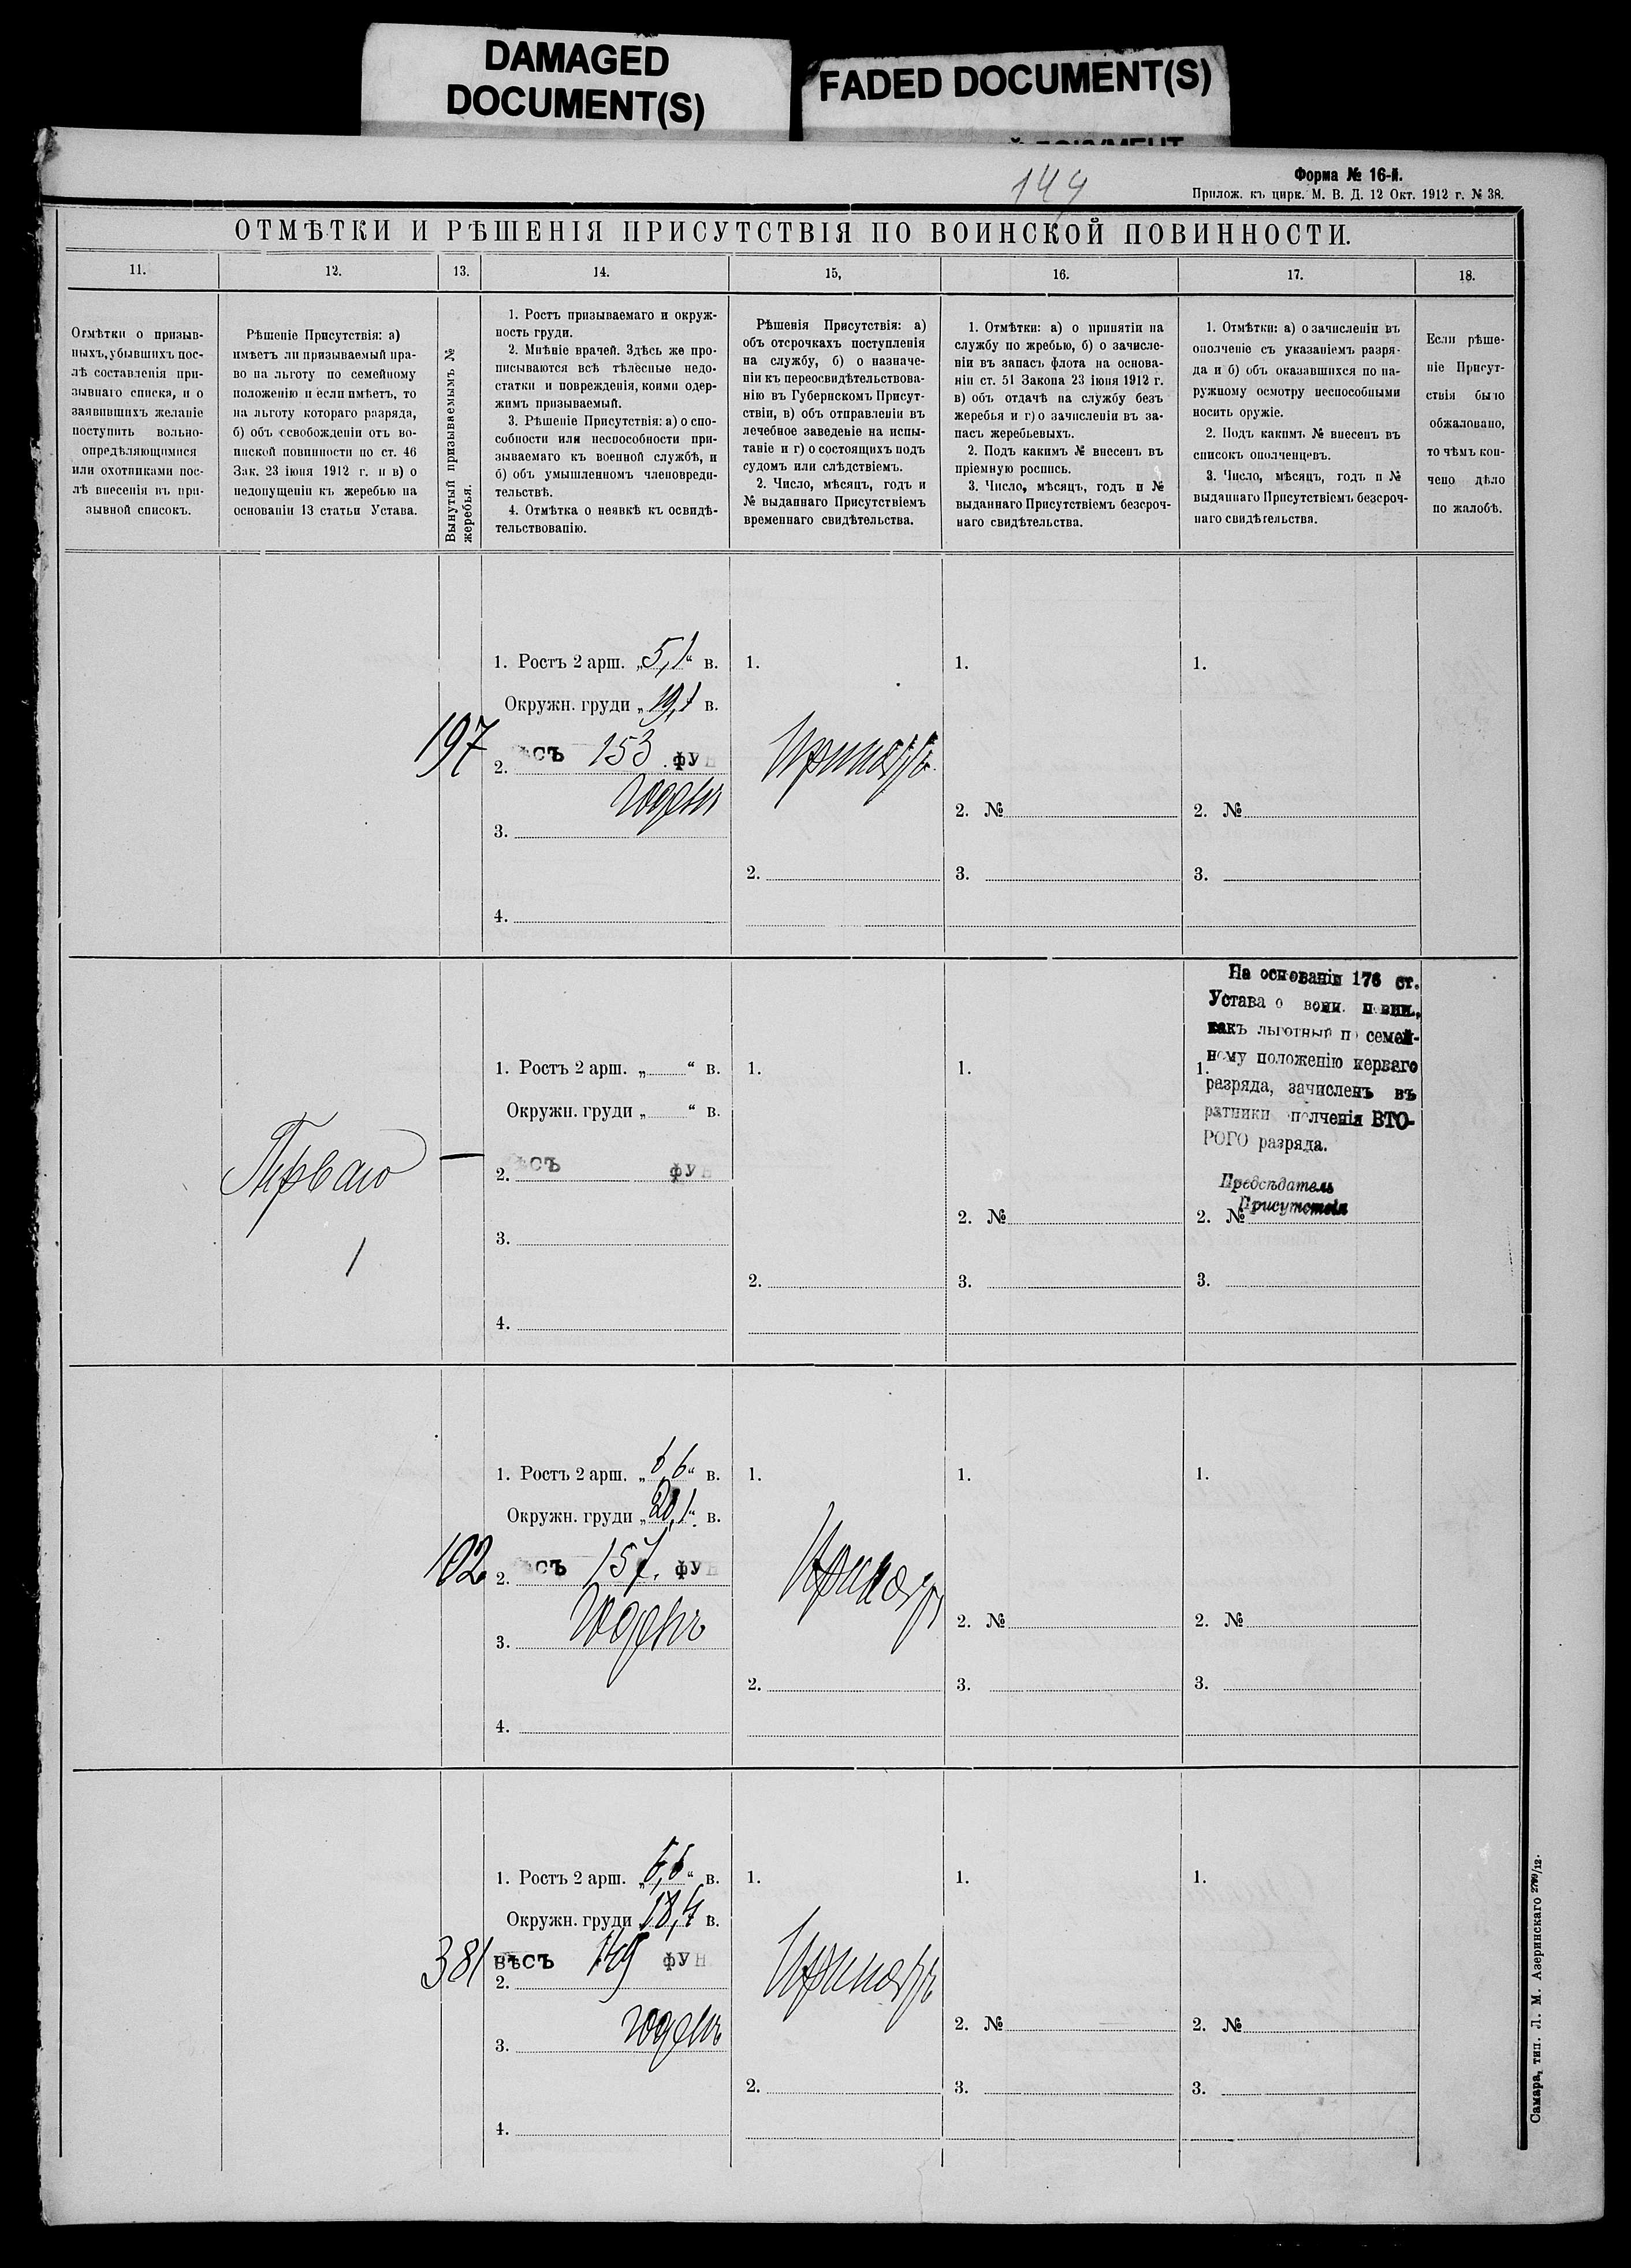 DAMAGED
DOCUMENT(S)
FADED DOCUMENT(S)
144
Форма № 16-й.
Прилож. къ цирк. М. В. Д. 12 Окт. 1912 г. № 38.
ОТМѢТКИ И РѢШЕНІЯ ПРИСУТСТВІЯ ПО ВОИНСКОЙ ПОВИННОСТИ.
11.
12.
13.
14.
15,
16.
17.
18.
Отмѣтки о призыв-
ныхъ, убывшихъ пос-
лѣ составленія при-
зывнаго списка, и о
заявившихъ желаніе
поступить вольно-
опредѣляющимися
или охотниками пос-
лѣ внесенія въ при-
зывной списокъ.
Рѣшеніе Присутствія: а)
имѣетъ ли призываемый пра-
во на льготу по семейному
положенію и если имѣетъ, то
на льготу котораго разряда,
б) объ освобожденіи отъ во-
инской повинности по ст. 46
Зак. 23 іюня 1912 г. и в) о
недопущеніи къ жеребью на
основаніи 13 статьи Устава.
Вынутый призываемымъ №
жеребья.
1. Ростъ призываемаго и окруж-
ность груди.
2. Мнѣніе врачей. Здѣсь же про-
писываются всѣ тѣлесные недо-
статки и поврежденія, коими одер-
жимъ призываемый.
3. Рѣшеніе Присутствія: а) о спо-
собности или неспособности при-
зываемаго къ военной службѣ, и
б) объ умышленномъ членовреди-
тельствѣ.
4. Отмѣтка о неявкѣ къ освидѣ-
тельствованію.
Рѣшенія Присутствія: а)
объ отсрочкахъ поступленія
на службу, б) о назначе-
ніи къ переосвидѣтельствова-
нію въ Губернскомъ Присут-
ствіи, в) объ отправленіи въ
лечебное заведеніе на испы-
таніе и г) о состоящихъ подъ
судомъ или слѣдствіемъ.
2. Число, мѣсяцъ, годъ и
№ выданнаго Присутствіемъ
временнаго свидѣтельства.
1. Отмѣтки: а) о принятіи на
службу по жребью, б) о зачисле-
ніи въ запасъ флота на основа-
ніи ст. 51 Закона 23 іюня 1912 г.
в) объ отдачѣ на службу безъ
жеребья и г) о зачисленіи въ за-
пасъ жеребьевыхъ.
2. Подъ какимъ № внесенъ въ
пріемную роспись.
3. Число, мѣсяцъ, годъ и №
выданнаго Присутствіемъ безсроч-
наго свидѣтельства.
1. Отмѣтки: а) о зачисленіи въ
ополченіе съ указаніемъ разря-
да и б) объ оказавшихся по на-
ружному осмотру неспособными
носить оружіе.
2. Подъ какимъ № внесенъ въ
списокъ ополченцевъ.
3. Число, мѣсяцъ, годъ и №
выданнаго Присутствіемъ безсроч-
наго свидѣтельства.
Если рѣше-
ніе Присут-
ствія было
обжаловано,
то чѣмъ кон-
чено дѣло
по жалобѣ.
197
1. Ростъ 2 арш. „5,1“ в.
Окружн. груди „19,1 в.
2. ѣсъ 153 фун
3. годенъ
4.
1. Принятъ
2.
1.
2. №
3.
1.
2. №
3.
Перваго
1
—
1. Ростъ 2 арш. „ “ в.
Окружн. груди „ “ в.
2. ѣсъ фун
3.
4.
1.
2.
1.
2. №
3.
На основаніи 176 ст.
Устава о воин. повин.,
какъ льготный по семей-
ному положенію перваго
1.
разряда, зачисленъ въ
ратники ополченія ВТО-
РОГО разряда.
Предсѣдатель
Присутствія
2. №
3.
102
1. Ростъ 2 арш. „6,6“ в.
Окружн. груди „20,1“ в.
2. ѣсъ 157. фун
3. Годенъ
4.
1. Принятъ
2.
1.
2. №
3.
1.
2. №
3.
381
1. Ростъ 2 арш. „6,6“ в.
Окружн. груди 18,4 в.
вѣсъ 149 фун
2.
3. годенъ
4.
1. Принятъ
2.
1.
2. №
3.
1.
2. №
3.
Самара, тип. Л. М. Азеринскаго 2799/12.